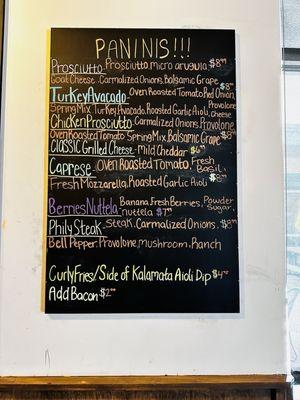 PANINIS!!!
Prosciutto Prosciutto, micro arugula $8⁰⁰
Goat Cheese, Carmalized Onions, Balsamic Grape
Turkey Avacado Oven Roasted Tomato, Red Onion, $8⁰⁰
Spring Mix, Turkey, Avacado, Roasted Garlic Aioli, Provolone Cheese
Chicken Prosciutto Carmalized Onions, Provolone
Oven Roasted Tomato Spring Mix, Balsamic Grape $8⁰⁰
Classic Grilled Cheese- Mild Cheddar $6⁰⁰
Caprese Oven Roasted Tomato, Fresh Basil,
Fresh Mozzarella, Roasted Garlic Aioli $8⁰⁰
Berries Nuttela Banana, Fresh Berries, Powder Sugar,
nuttela $7⁰⁰
Phily Steak Steak, Carmalized Onions, $8⁰⁰
Bell Pepper, Provolone, mushroom, Ranch
Curly Fries/Side of Kalamata Aioli Dip $4⁰⁰
Add Bacon $2⁰⁰